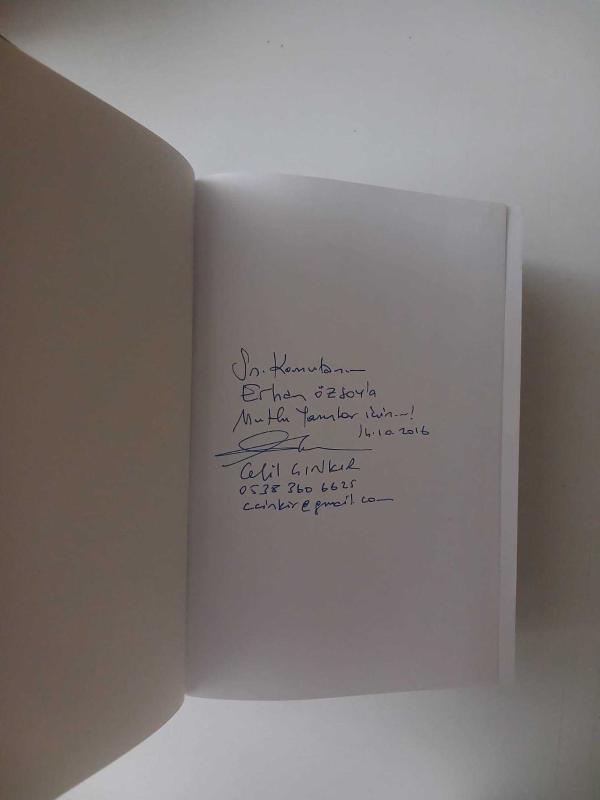 Sn. Komutanım
Erhan Özsoy'a
Mutlu Yarınlar için...!
14.10.2016
Celil ÇINKIR
0538 360 6625
ccinkir@gmail.com